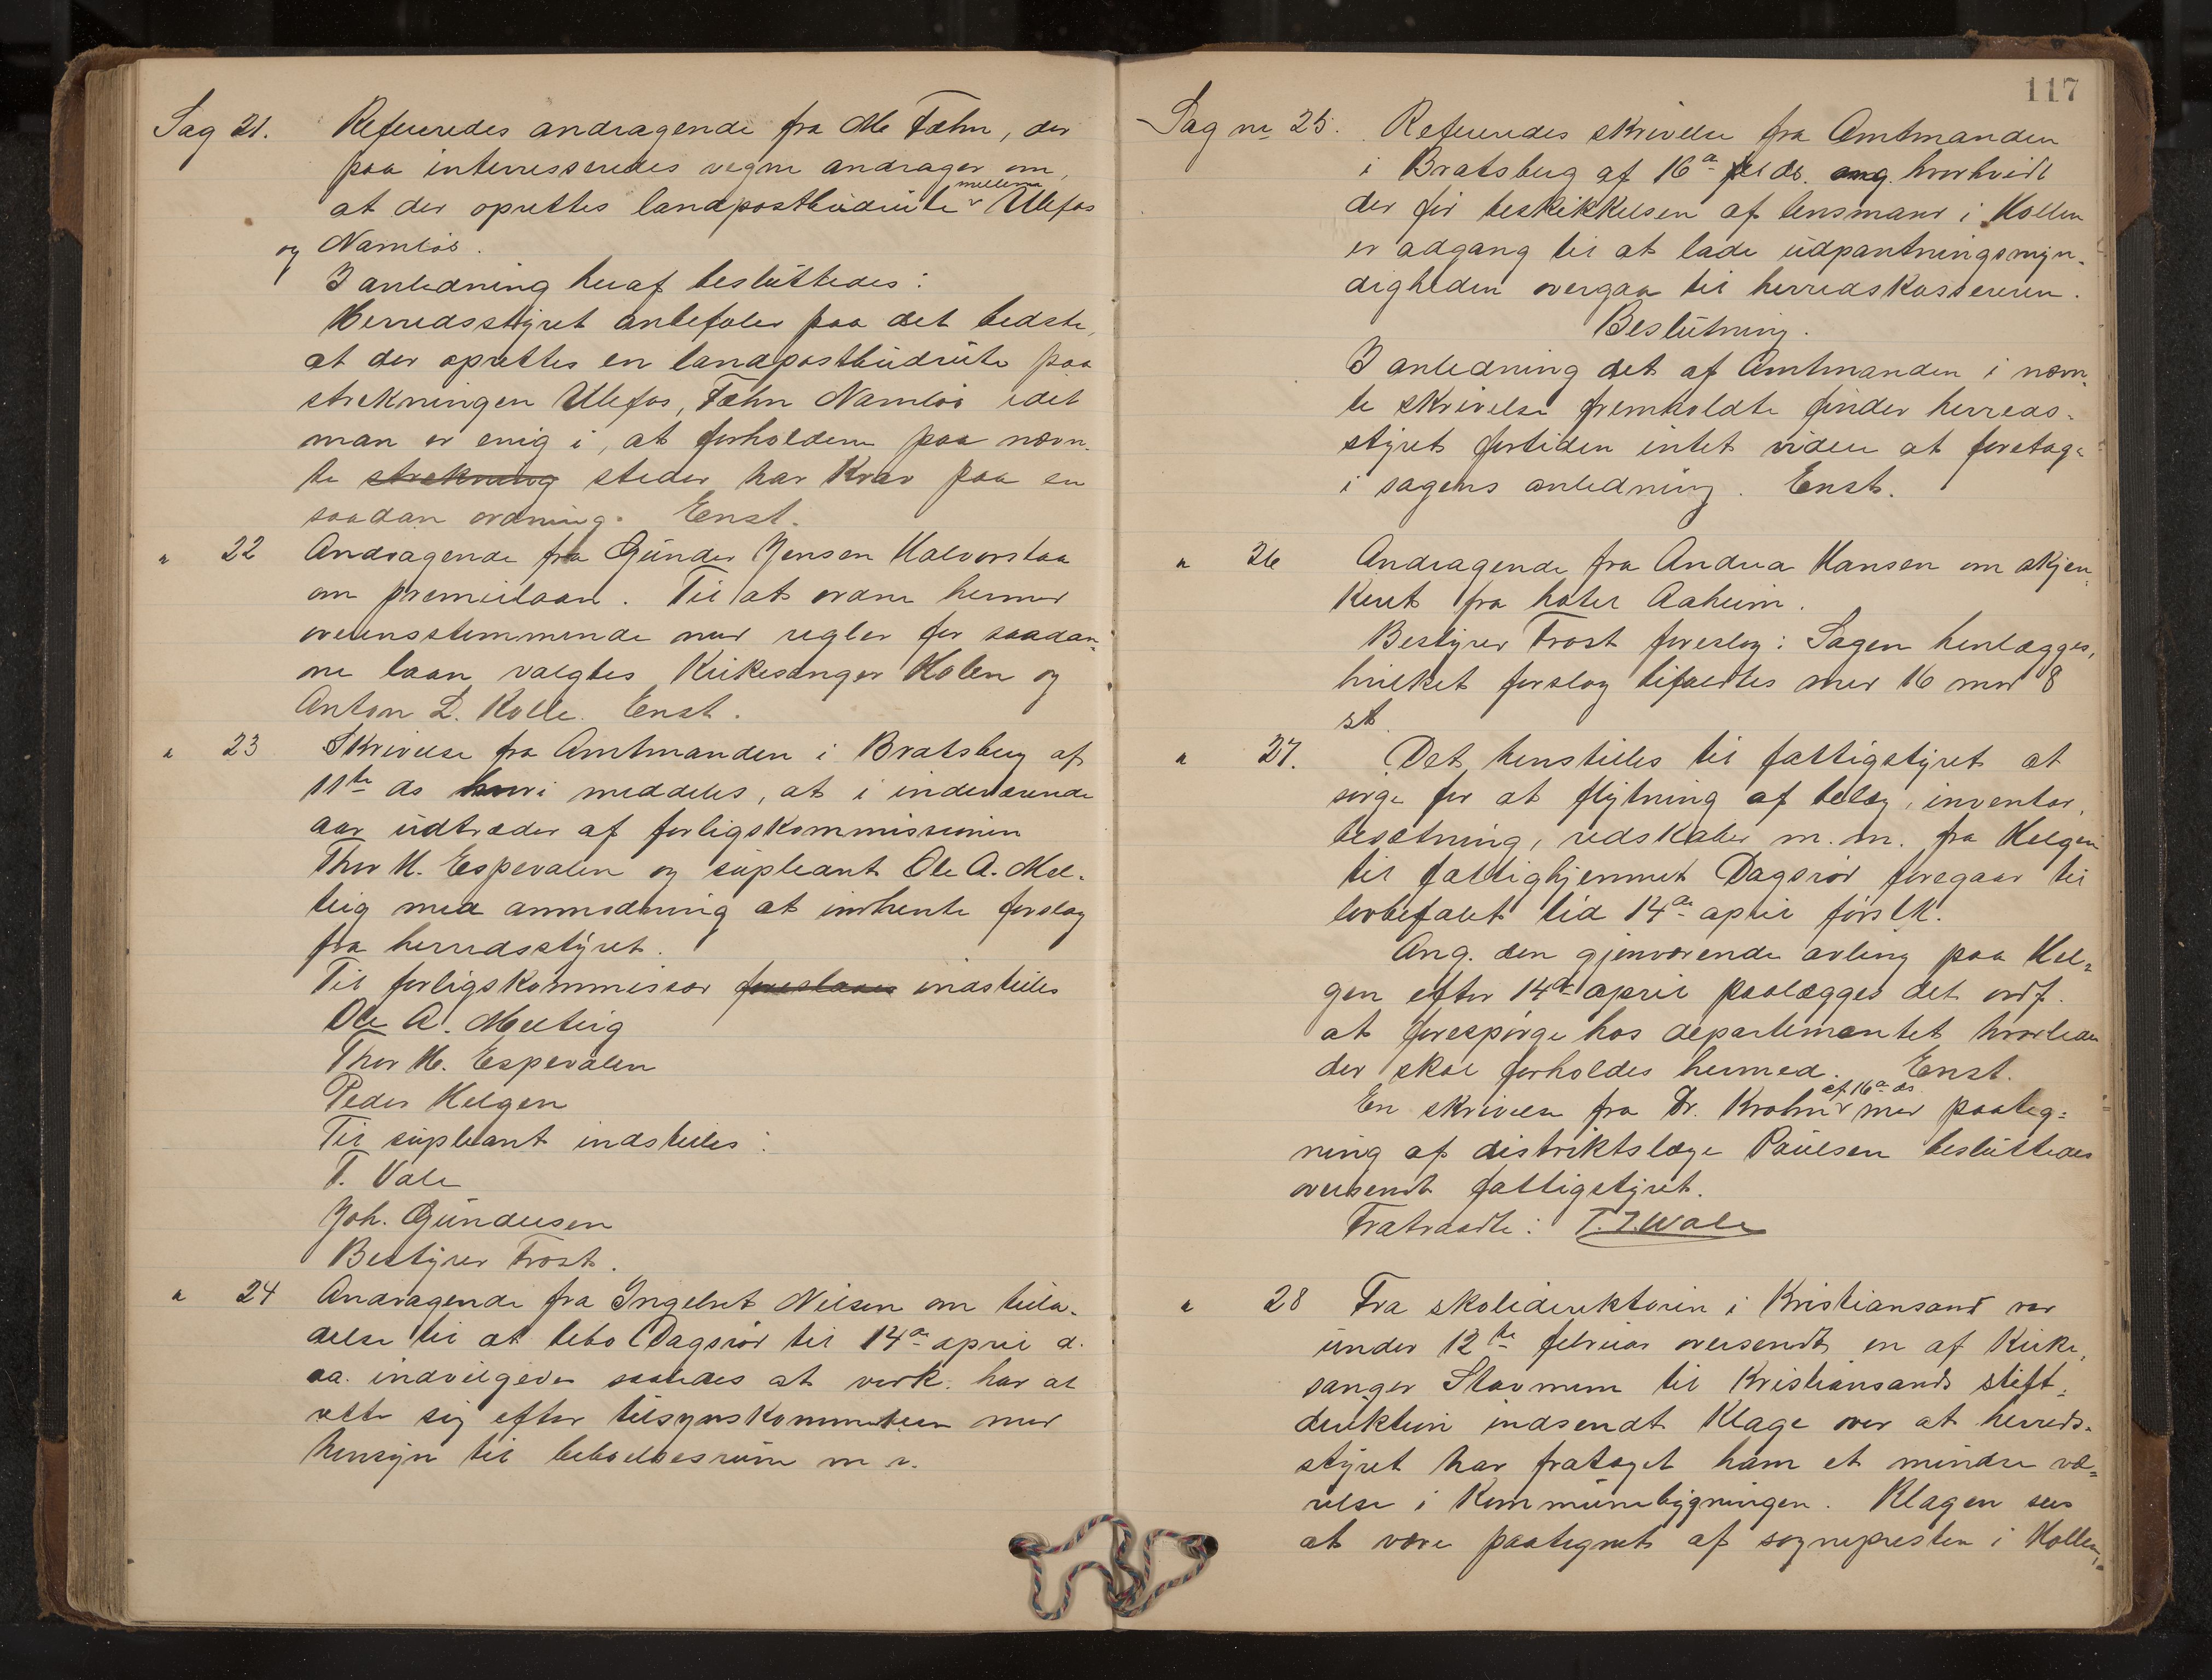 Sag 21. Refereredes andragende fra M. Fæhn, der
paa interresseredes vegne andrager om,
at der oprettes landpostbudrute mellem Ulefos
og Namløs.
I anledning heraf besluttedes:
Herredsstyret anbefaler paa det bedste,
at der oprettes en landpostbudrute paa
strekningen Ulefos, Fæhn Namløs idet
man er enig i, at forholdene paa nævn-
te strekning steder har krav paa en
saadan ordning. Enst.
" 22 Andragende fra Gunder Jensen Halvorstaa
om premielaan. Til at ordne hermed
overensstemmende med regler for saadan-
ne laan valgtes Kirkesanger Holen og
Anton L. Kolle. Enst.
" 23 Skrivelse fra Amtmanden i Bratsberg af
11te ds hvori meddeles, at i indeværende
aar udtræder af forligskommissionen
Thor H. Espevalen og supleant Ole A. Mel-
teig med anmodning at indhente forslag
fra herredsstyret.
Til forligskommissær foreslaaes indstilles
Ole A. Melteig
Thor H. Espevalen
Peder Helgen
Til supleant indstilles:
T. Vale
Joh. Gundersen
Bestyrer Frost.
" 24 Andragende fra Ingebret Nilsen om tilla-
delse til at bebo Dagsrød til 14de april d.
aa. indvilgedes saaledes at vedk. har at
rette sig efter tilsynskommiteen med
hensyn til beboelsesrum m. v.
117
Sag nr 25. Refereredes skrivelse fra Amtmanden
i Bratsberg af 16de ds. ang. hvorhvidt
der før beskikkelsen af lensmand i Hollen
er adgang til at lade udpantningsmyn-
digheden overgaa til herredskassereren.
Beslutning.
I anledning det af Amtmanden i nævn-
te skrivelse fremholdte finder herreds-
styret fortiden intet videre at foretage
i sagens anledning. Enst.
" 26 Andragende fra Andrea Hansen om skjen-
keret fra hotel Aaheim.
Bestyrer Frost foreslog: Sagen henlægges,
hvilket forslag bifaldtes med 16 mod 8
st.
" 27. Det henstilles til fattigstyret at
sørge for at flytning af belæg, inventar,
besætning, redskaber m. m. fra Helgen
til fattighjemmet Dagsrød foregaar til
lovbefalet tid 14de april førstk.
Ang. den gjenværende avling paa Hel-
gen efter 14de april paalægges det ordf.
at forespørge hos departementet hvorledes
der skal forholdes hermed. Enst.
En skrivelse fra Dr. Krohn af 16de ds med paateg-
ning af distriktslæge Paulsen besluttedes
oversendt fattigstyret.
Fratraadte: T. J. Wale
" 28 Fra skoledirektøren i Kristiansand var
under 12te februar oversendt en af Kirke-
sanger Stavnum til Kristiansands stift-
direktion indsendt Klage over at herreds-
styret har frataget ham et mindre væ-
relse i Kommunebygningen. Klagen sees
at være paategnet af sognepresten i Hollen,